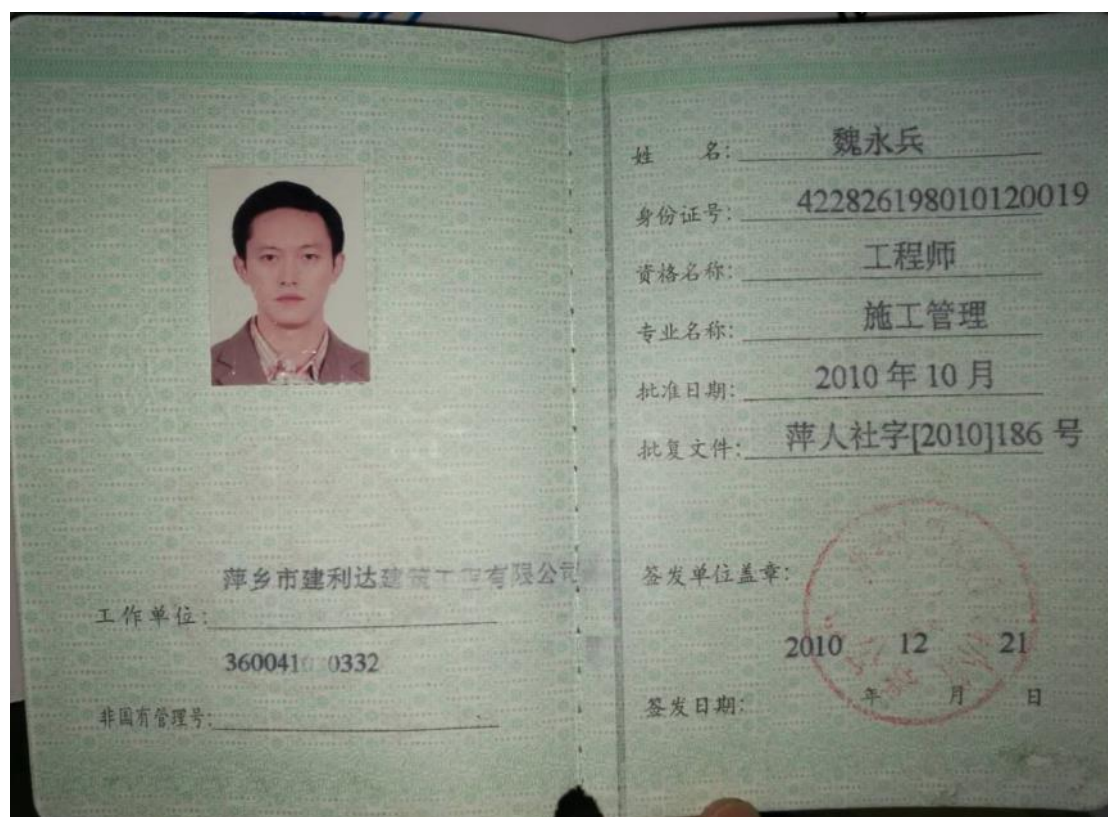 萍乡市建利达建筑工程有限公司
工作单位:
360041 0332
非国有管理号:
姓 名: 魏永兵
身份证号: 422826198010120019
资格名称: 工程师
专业名称: 施工管理
批准日期: 2010 年 10 月
批复文件: 萍人社字[2010]186 号
签发单位盖章:
2010 12 21
签发日期: 年 月 日